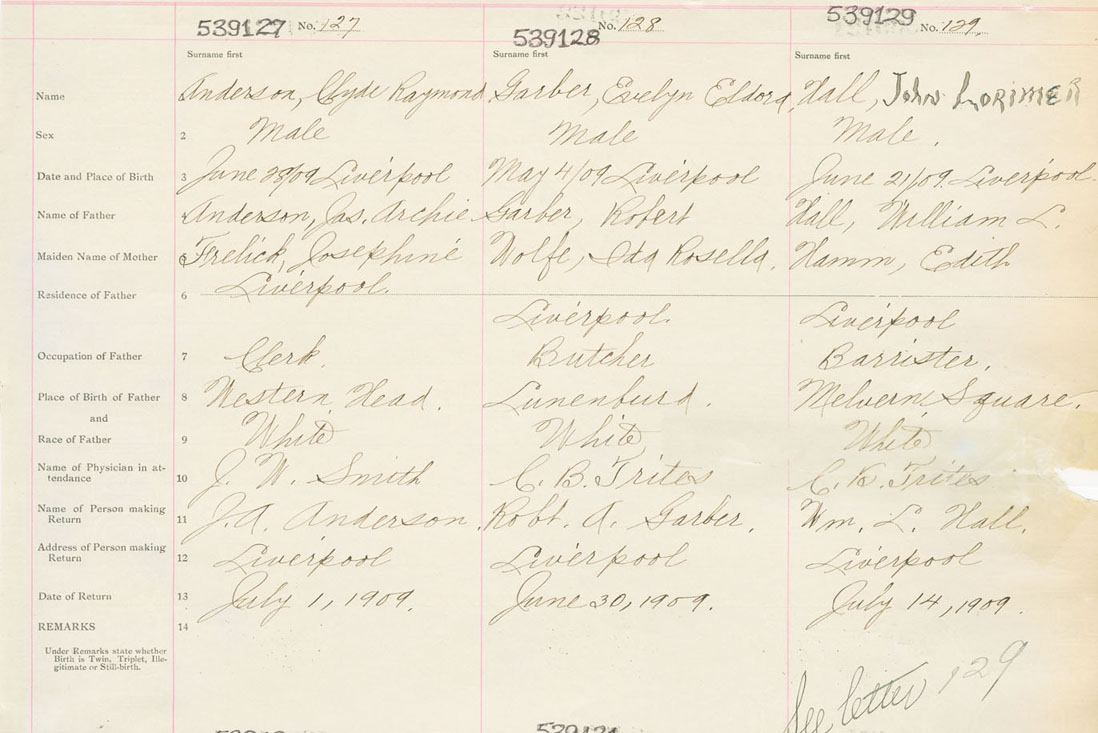 539127 No. 127 539128 No. 128 539129 No. 129
Surname first Surname first Surname first
Name Anderson, Clyde Raymond Garber, Evelyn Eldora Hall, John Lorimer
Sex 2 Male Male Male.
Date and Place of Birth 3 June 28/09 Liverpool May 4/09 Liverpool June 21/09. Liverpool.
Name of Father Anderson, Jas. Archie Garber, Robert Hall, William L.
Maiden Name of Mother Frelick, Josephine Wolfe, Ida Rosella. Hamm, Edith
Residence of Father 6 Liverpool.
Liverpool. Liverpool
Occupation of Father 7 Clerk. Butcher Barrister.
Place of Birth of Father 8 Western Head. Lunenburg. Melvern Square.
and
Race of Father 9 White White White
Name of Physician in at-
tendance 10 J. W. Smith C. B. Trites C. K. Trites
Name of Person making
Return 11 J. A. Anderson. Robt. A. Garber. Wm. L. Hall.
Address of Person making
Return 12 Liverpool Liverpool Liverpool
Date of Return 13 July 1, 1909. June 30, 1909. July 14, 1909.
REMARKS 14
Under Remarks state whether
Birth is Twin, Triplet, Ille-
gitimate or Still-birth.
See letter 129